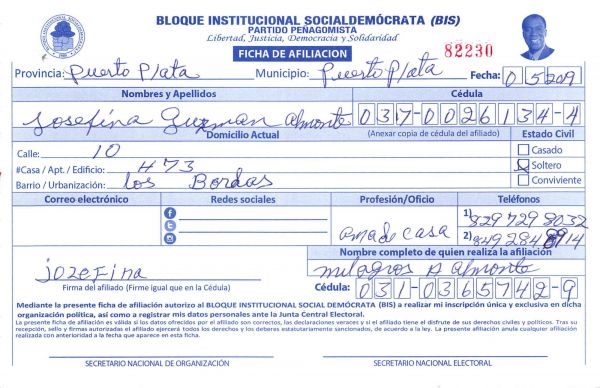 BLOQUE INSTITUCIONAL SOCIALDEMÓCRATA (BIS)
PARTIDO PEÑAGOMISTA
Libertad, Justicia, Democracia y Solidaridad
FICHA DE AFILIACION
82230
Provincia: Puerto Plata Municipio: Puerto Plata Fecha: 05209
Nombres y Apellidos Cédula
Josefina Guzman Almonte 037-0026134-4
Domicilio Actual (Anexar copia de cédula del afiliado) Estado Civil
Calle: 10 Casado
#Casa / Apt. / Edificio: #73 Soltero
Barrio / Urbanización: los Bordas Conviviente
Correo electrónico Redes sociales Profesión/Oficio Teléfonos
1) 829 729 8032
ama de casa 2) 849 284 14
Nombre completo de quien realiza la afiliación
jozefina milagros A Almonte
Firma del afiliado (Firme igual que en la Cédula) Cédula: 031-0365742-9
Mediante la presente ficha de afiliación autorizo al BLOQUE INSTITUCIONAL SOCIAL DEMÓCRATA (BIS) a realizar mi inscripción única y exclusiva en dicha
organización política, así como a registrar mis datos personales ante la Junta Central Electoral.
La presente ficha de afiliación es válida si los datos ofrecidos por el afiliado son correctos, las declaraciones veraces y si el afiliado tiene el disfrute de sus derechos civiles y políticos. Tras su
recepción, sello y firmas autorizadas el afiliado ejercerá todos los derechos y los deberes estatutariamente sancionados, de acuerdo a la ley. La presente afiliación anula cualquier afiliación
realizada con anterioridad a la fecha que aparece en esta ficha.
SECRETARIO NACIONAL DE ORGANIZACIÓN SECRETARIO NACIONAL ELECTORAL